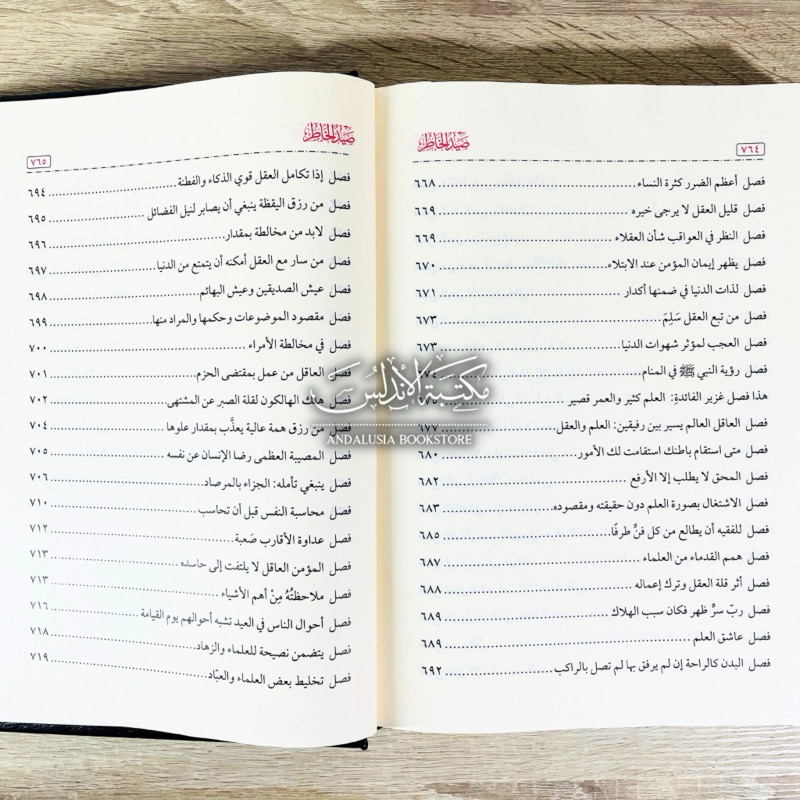 صَيْدُ الخَاطِر
٧٦٤
فصل أعظم الضرر كثرة النساء ٦٦٨
فصل قليل العقل لا يرجى خيره ٦٦٩
فصل النظر في العواقب شأن العقلاء ٦٦٩
فصل يظهر إيمان المؤمن عند الابتلاء ٦٧٠
فصل لذات الدنيا في ضمنها أكدار ٦٧١
فصل من تبع العقل سَلِمَ ٦٧٣
فصل العجب لمؤثر شهوات الدنيا ٦٧٣
فصل رؤية النبي ﷺ في المنام ٦٧٤
هذا فصل غزير الفائدة: العلم كثير والعمر قصير ٦٧٥
فصل العاقل العالم يسير بين رفيقين: العلم والعقل ٦٧٧
فصل متى استقام باطنك استقامت لك الأمور ٦٨٠
فصل المحق لا يطلب إلا الأرفع ٦٨٢
فصل الاشتغال بصورة العلم دون حقيقته ومقصوده ٦٨٣
فصل للفقيه أن يطالع من كل فنٍّ طرفًا ٦٨٥
فصل همم القدماء من العلماء ٦٨٧
فصل أثر قلة العقل وترك إعماله ٦٨٨
فصل ربّ سرٍّ ظهر فكان سبب الهلاك ٦٨٩
فصل عاشق العلم ٦٨٩
فصل البدن كالراحة إن لم يرفق بها لم تصل بالراكب ٦٩٢
صَيْدُ الخَاطِر
٧٦٥
فصل إذا تكامل العقل قوي الذكاء والفطنة ٦٩٤
فصل من رزق اليقظة ينبغي أن يصابر لنيل الفضائل ٦٩٥
فصل لابد من مخالطة بمقدار ٦٩٦
فصل من سار مع العقل أمكنه أن يتمتع من الدنيا ٦٩٧
فصل عيش الصديقين وعيش البهائم ٦٩٨
فصل مقصود الموضوعات وحكمها والمراد منها ٦٩٩
فصل في مخالطة الأمراء ٧٠٠
فصل العاقل من عمل بمقتضى الحزم ٧٠١
فصل هلك الهالكون لقلة الصبر عن المشتهى ٧٠٢
فصل من رزق همة عالية يعذَّب بمقدار علوها ٧٠٤
فصل المصيبة العظمى رضا الإنسان عن نفسه ٧٠٥
فصل ينبغي تأمله: الجزاء بالمرصاد ٧٠٦
فصل محاسبة النفس قبل أن تحاسب ٧١٠
فصل عداوة الأقارب صَعبة ٧١٢
فصل المؤمن العاقل لا يلتفت إلى حاسده ٧١٣
فصل ملاحظتُهُ مِنْ أهم الأشياء ٧١٣
فصل أحوال الناس في العيد تشبه أحوالهم يوم القيامة ٧١٦
فصل يتضمن نصيحة للعلماء والزهاد ٧١٨
فصل تخليط بعض العلماء والعبّاد ٧١٩
مكتبة الأندلس
ANDALUSIA BOOKSTORE